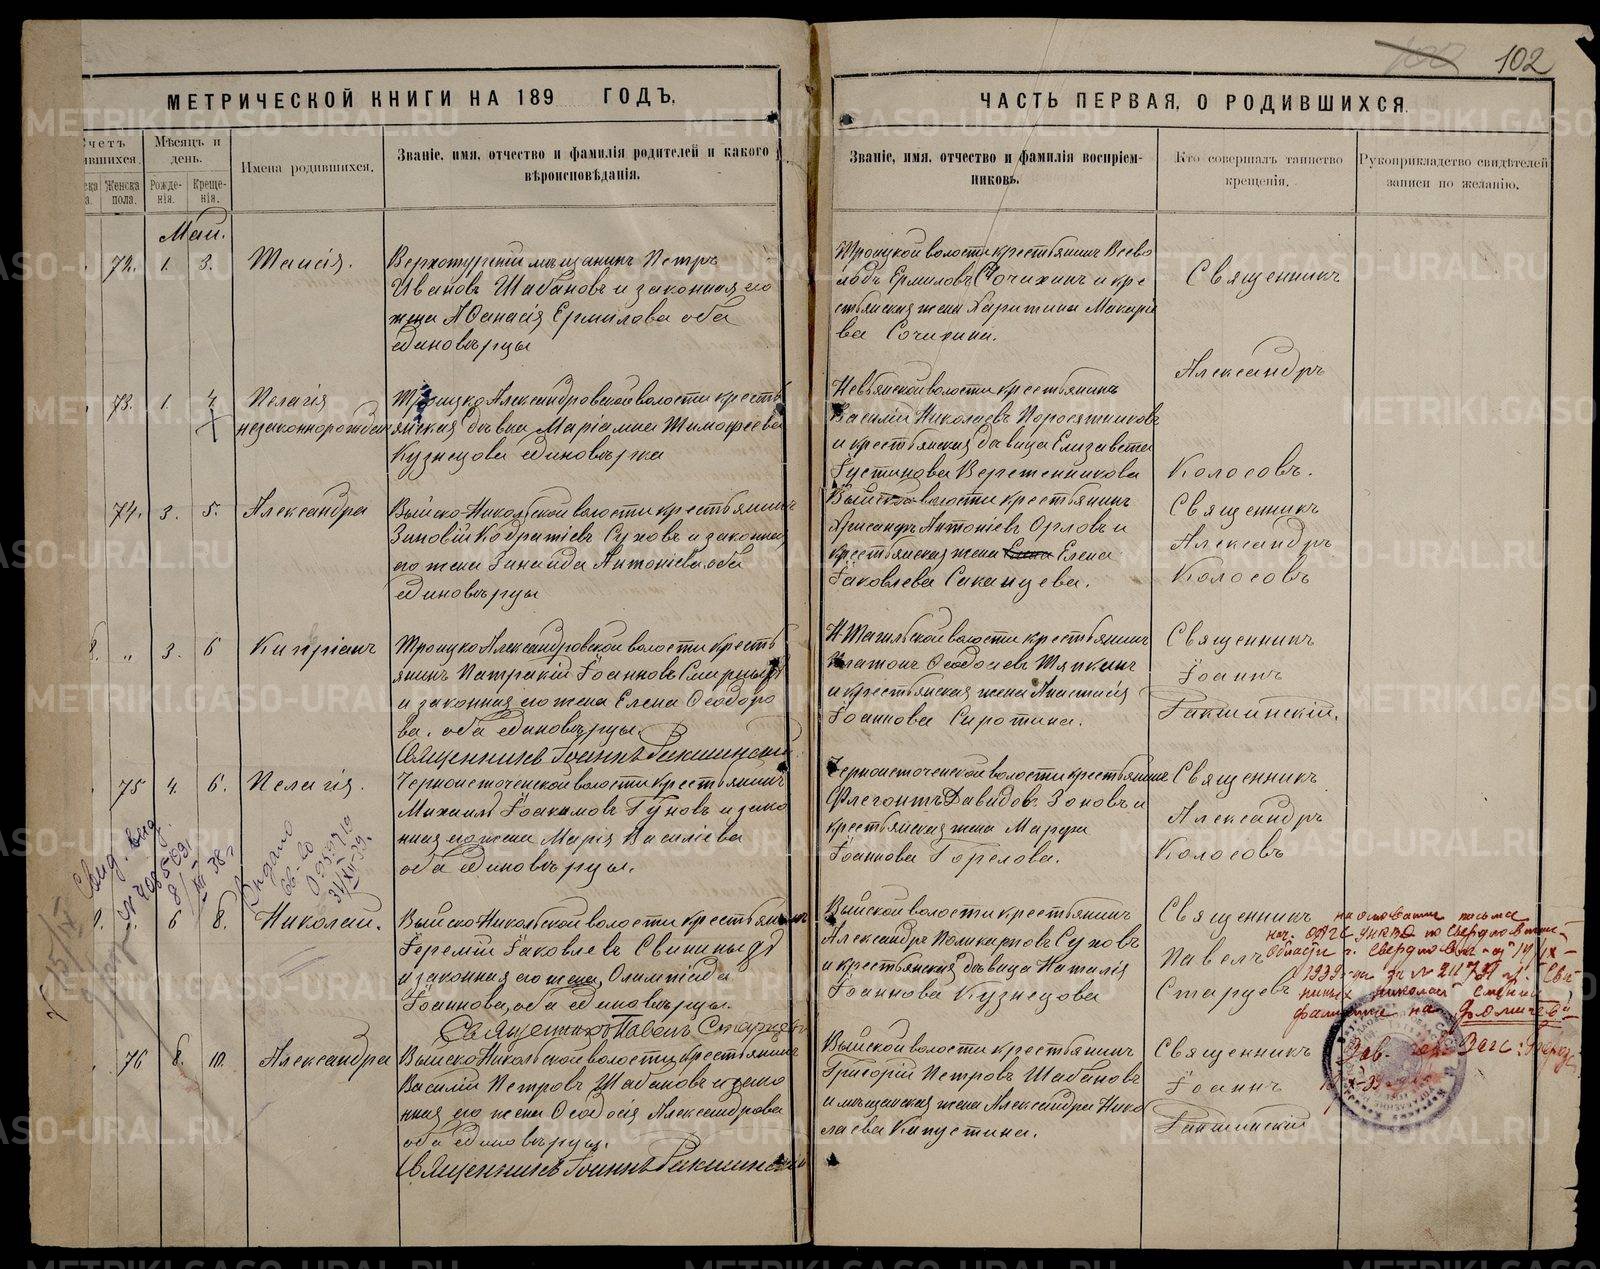 102
МЕТРИЧЕСКОЙ КНИГИ НА 189 ГОДЪ,
ЧАСТЬ ПЕРВАЯ, О РОДИВШИХСЯ.
Мѣсяцъ и день.
Женска пола.
Рожденія.
Крещенія.
Имена родившихся.
Званіе, имя, отчество и фамилія родителей и какого
вѣроисповѣданія.
Званіе, имя, отчество и фамилія воспріем-
никовъ.
Кто совершалъ таинство
крещенія.
Рукоприкладство свидѣтелей
записи по желанію.
Май.
72. 1. 3. Таисія.
Верхотурскій мѣщанинъ Петръ
Ивановъ Шабановъ и законная его
жена Аѳанасія Ермилова оба
единовѣрцы
Троицкой волости крестьянинъ Всево
лодъ Ермиловъ Сочихинъ и кре
стьянская жена Харитина Макаріе
ва Сочихина.
Священникъ
Александръ
Колосовъ.
73. 1. 4. Пелагія
незаконнорожден
Троицко Александровской волости кресть
янская дѣвка Маріамна Тимофеева
Кузнецова единовѣрка
Невьянской волости крестьянинъ
Василій Николаевъ Поросятниковъ
и крестьянская дѣвица Елизавета
Іустинова Веретенникова
74. 3. 5. Александра
Выйско-Никольской волости крестьянинъ
Зиновій Кодратіевъ Суховъ и законная
его жена Зинаида Антоніева, оба
единовѣрцы
Выйской волости крестьянинъ
Хрисанфъ Антоніевъ Орловъ и
крестьянская жена Елена Елена
Іаковлева Саканцева.
Священникъ
Александръ
Колосовъ
„ 3. 6 Кипріанъ
Троицко Александровской волости кресть
янинъ Патрикій Іоанновъ Смирныхъ
и законная его жена Елена Ѳеодоро
ва. оба единовѣрцы.
Священникъ Іоаннъ Гакшинскій
Н Тагильской волости крестьянинъ
Платонъ Ѳеодосіевъ Тяпкинъ
и крестьянская жена Анастасія
Іоаннова Сиротина.
Священникъ
Іоаннъ
Гакшинскій.
75 4. 6. Пелагія.
Черноисточенской волости крестьянинъ
Михаилъ Іоакимовъ Гуновъ и зако
нная его жена Марія Василіева
оба единовѣрцы.
Черноисточенской волости крестьянинъ
Флегонтъ Давидовъ Зоновъ и
крестьянская жена Марфа
Іоаннова Горелова.
Священникъ
Александръ
Колосовъ
6 8. Николай.
Выйско Никольской волости крестьянинъ
Іеремій Іаковлевъ Свининыхъ
и законная его жена, Олимпіада
Іоаннова, оба единовѣрцы.
Священникъ Павелъ Старцевъ
Выйской волости крестьянинъ
Александръ Поликарповъ Суховъ
и крестьянская дѣвица Наталія
Іоаннова Кузнецова
Священникъ
Павелъ
Старцевъ
на основании письма
нач. ОАГС УНКВД по Свердловской
области г. Свердловск от 14/IX-
1939 за № 211797 гр. Сви
ниных Николай сменил
фамилию на Фомичев
Зав. Загс:
76 8. 10. Александра
Выйско Никольской волости крестьянинъ
Василій Петровъ Шабановъ и зако
нная его жена Ѳеодосія Александрова
оба единовѣрцы.
Священникъ Іоаннъ Гакшинскій
Выйской волости крестьянинъ
Григорій Петровъ Шабановъ
и мѣщанская жена Александра Нико
лаева Капустина.
Священникъ
Іоаннъ
Гакшинскій
METRIKI.GASO-URAL.RU